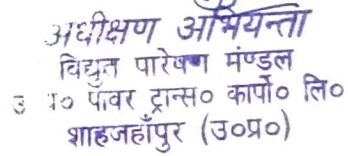 अधीक्षण अभियन्ता
विद्युत पारेषण मण्डल
उ प्र० पॉवर ट्रान्स० कार्पो० लि०
शाहजहाँपुर (उ०प्र०)